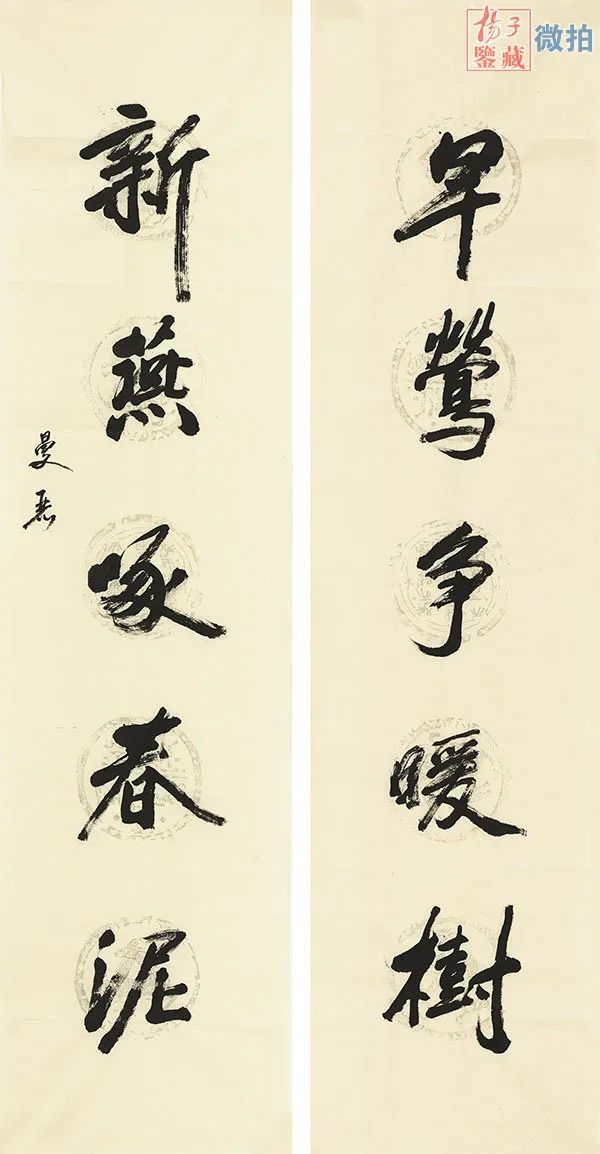 早莺争暖樹
新燕啄春泥
曼君
揚子鑒藏
微拍